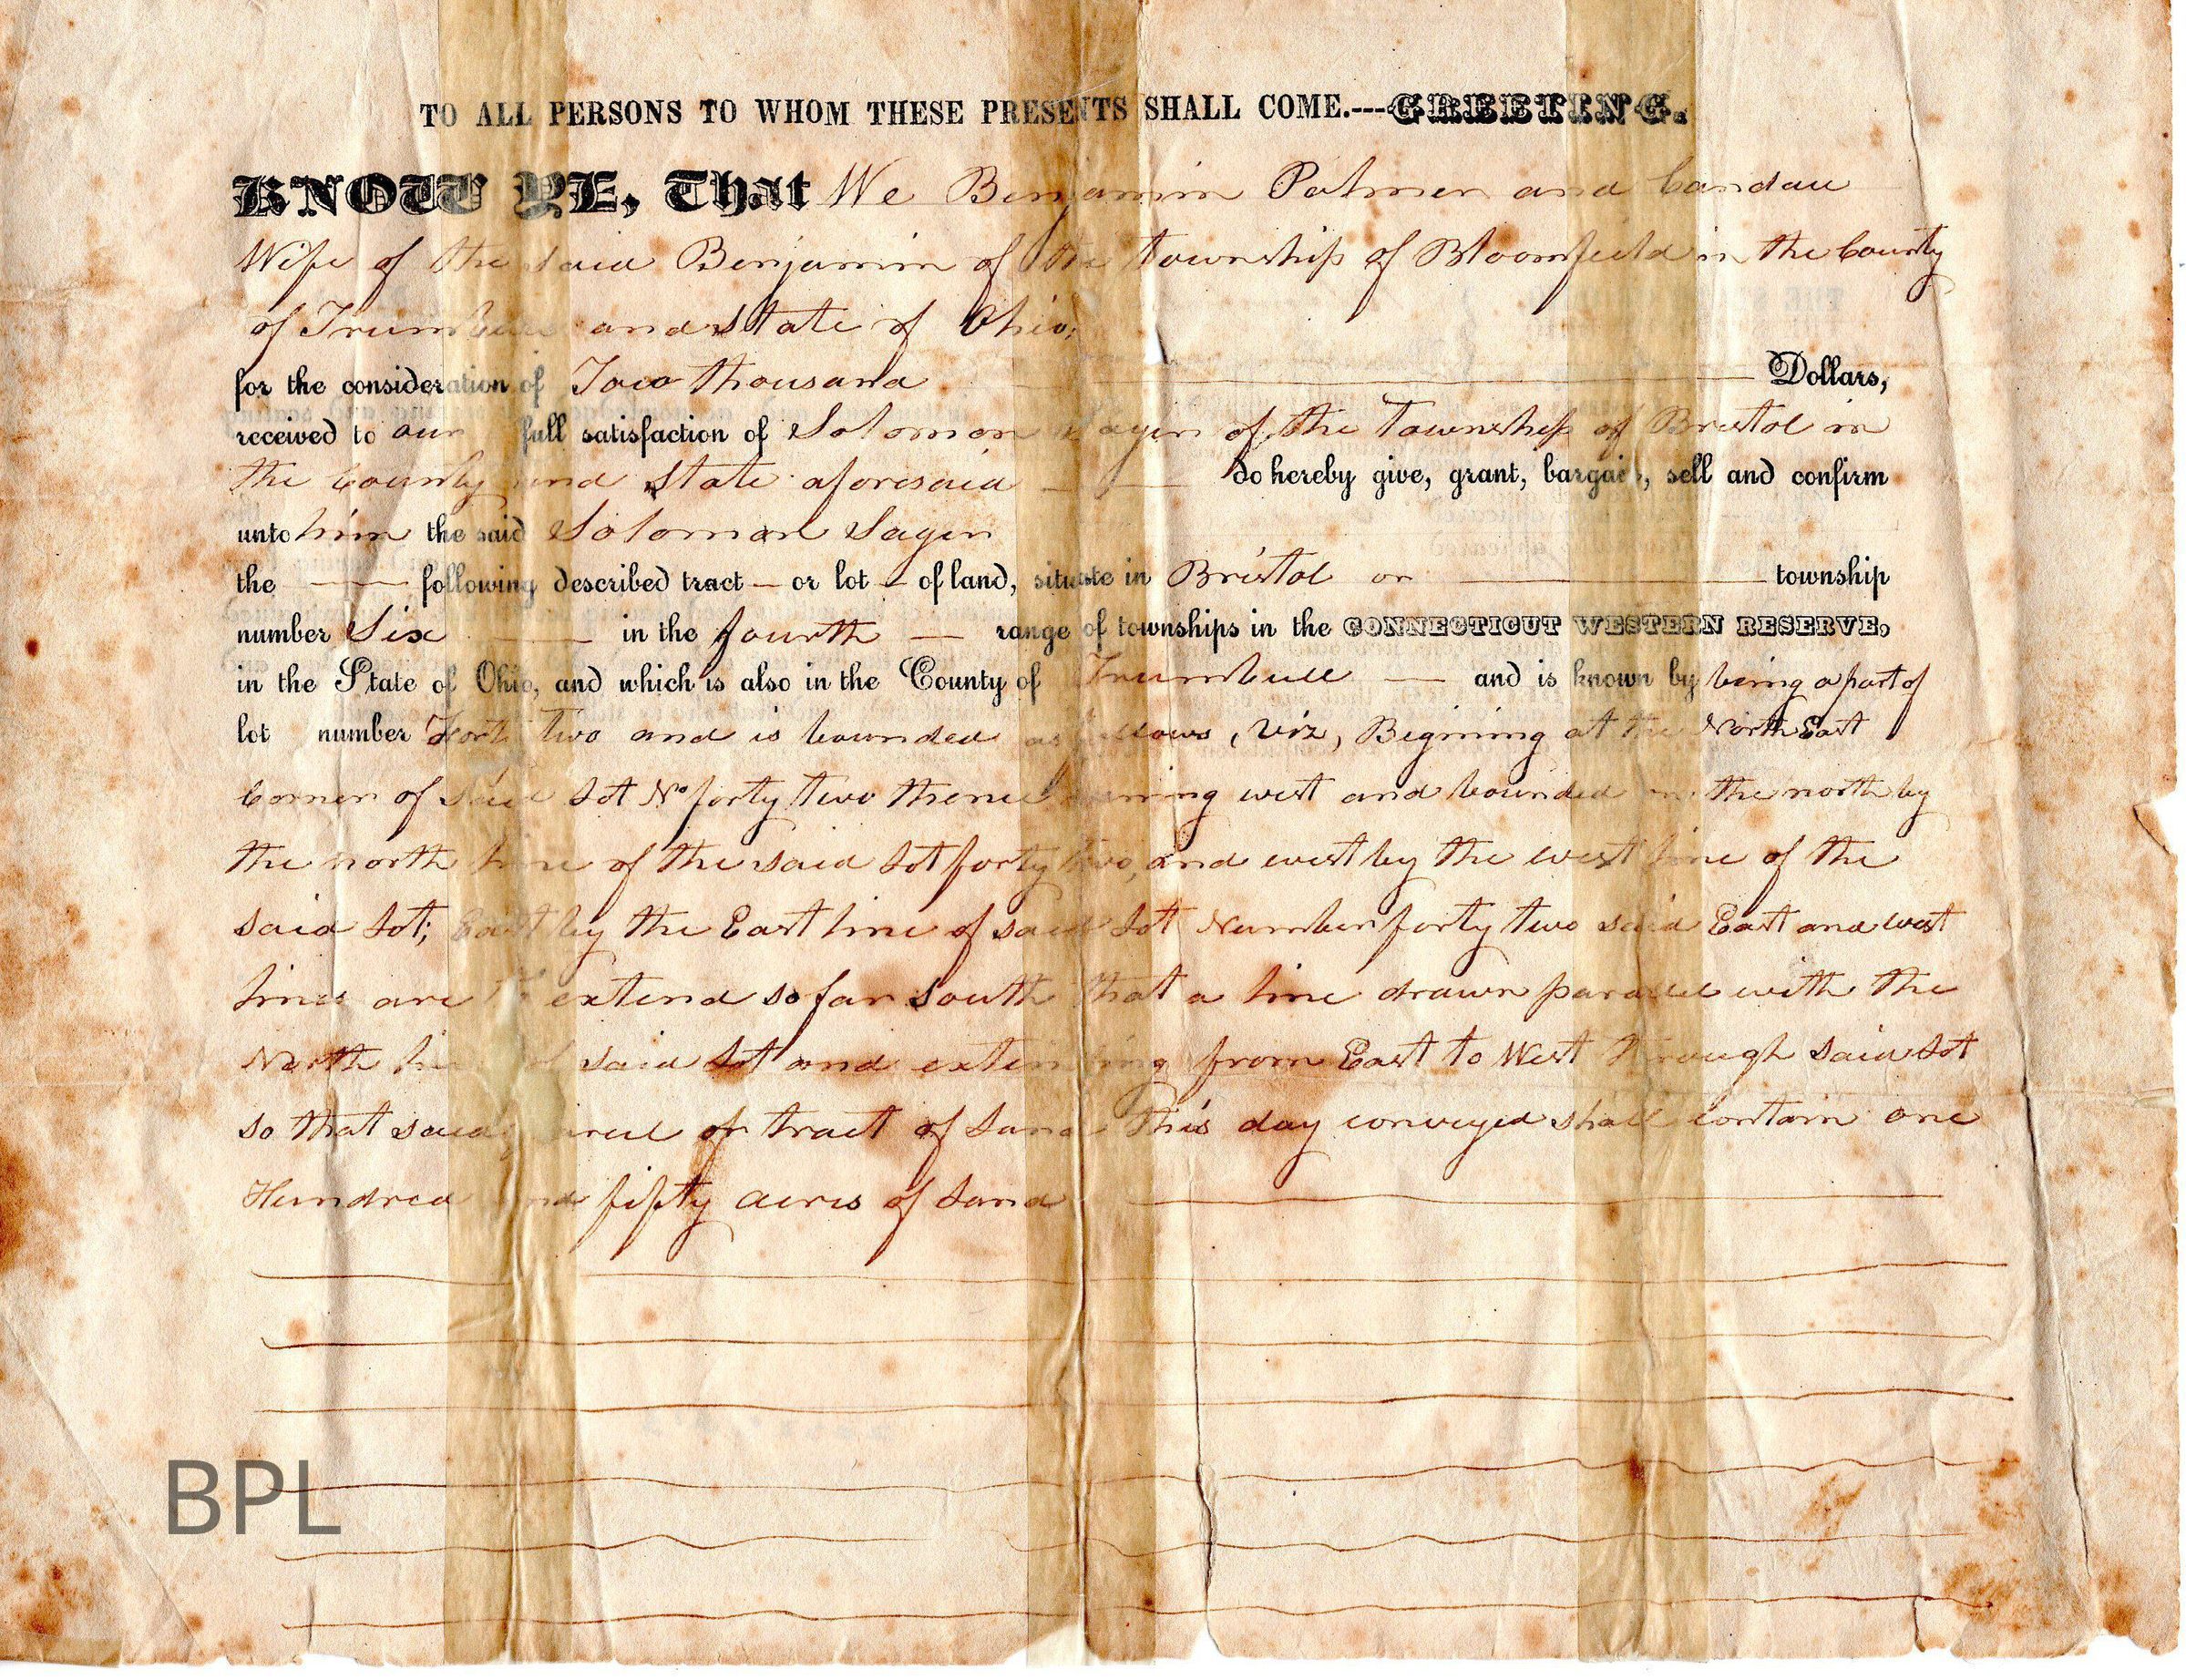 TO ALL PERSONS TO WHOM THESE PRESENTS SHALL COME.---GREETING.
KNOW YE, That We Benjamin Palmer and Candau
Wife of the said Benjamin of the township of Bloomfield in the County
of Trumbull and State of Ohio;
for the consideration of Two thousand Dollars,
received to our full satisfaction of Solomon Sager of the Township of Bristol in
the County and State aforesaid do hereby give, grant, bargain, sell and confirm
unto him the said Solomon Sager
the following described tract or lot of land, situate in Bristol or township
number Six in the fourth range of townships in the CONNECTICUT WESTERN RESERVE,
in the State of Ohio, and which is also in the County of Trumbull and is known by being a part of
lot number Forty two and is bounded as follows, viz, Begining at the North East
Corner of said Lot No forty two thence running west and bounded on the north by
the north line of the said Lot forty two, and west by the west line of the
said Lot; East by the East line of said Lot Number forty two said East and west
lines are to extend so far south that a line drawn parallel with the
North line of said Lot and extending from East to West through said Lot
so that said parcel or tract of Land this day conveyed shall contain one
Hundred and fifty acres of Land
BPL